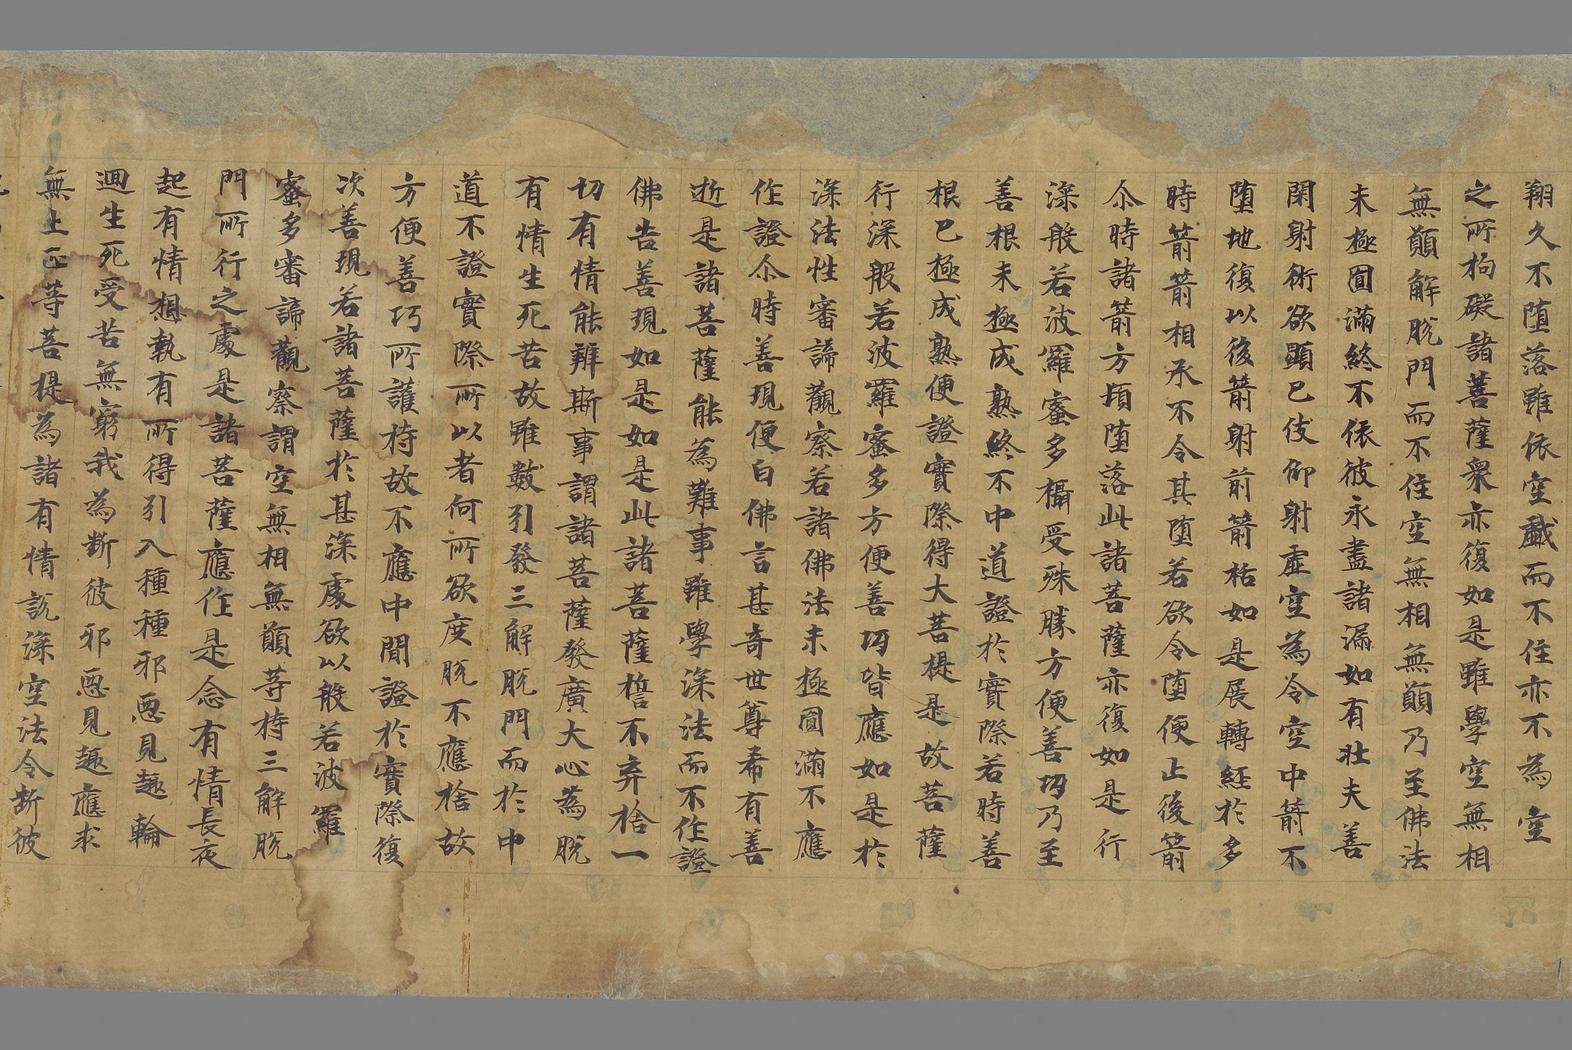 翔久不堕落雖依空戲而不住亦不為空
之所拘礙諸菩薩衆亦復如是雖學空無相
無顛解脫門而不住空無相無顛乃至佛法
未極圓滿終不依彼永盡諸漏如有壯夫善
閑射術欲顯已伎仰射虛空為令空中箭不
堕地復以後箭射前箭栝如是展轉經於多
時箭箭相承不令其堕若欲令堕便止後箭
尒時諸箭方頓堕落此諸菩薩亦復如是行
深般若波羅蜜多攝受殊勝方便善巧乃至
善根未極成熟終不中道證於實際若時善
根已極成熟便證實際得大菩提是故菩薩
行深般若波羅蜜多方便善巧皆應如是於
深法性審諦觀察若諸佛法未極圓滿不應
作證尒時善現便白佛言甚奇世尊希有善
逝是諸菩薩能為難事雖學深法而不作證
佛告善現如是如是此諸菩薩誓不弃捨一
切有情能辦斯事謂諸菩薩發廣大心為脫
有情生死苦故雖數引發三解脫門而於中
道不證實際所以者何所欲度脫不應捨故
方便善巧所護持故不應中間證於實際復
次善現若諸菩薩於甚深處欲以般若波羅
蜜多審諦觀察謂空無相無顛等持三解脫
門所行之處是諸菩薩應作是念有情長夜
起有情想執有所得引入種種邪惡見趣輪
迴生死受苦無窮我為斷彼邪惡見趣應求
無上正等菩提為諸有情說深空法令斷彼